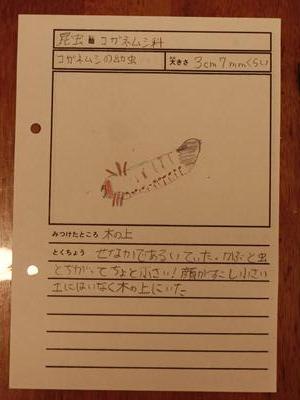 昆虫 コガネムシ科
コガネムシの幼虫 大きさ 3cm7mmくらい
みつけたところ 木の上
とくちょう せなかであるいていた。かぶと虫
とちがってちょと小さい!顔がすこし小さい
土にはいなく木の上にいた